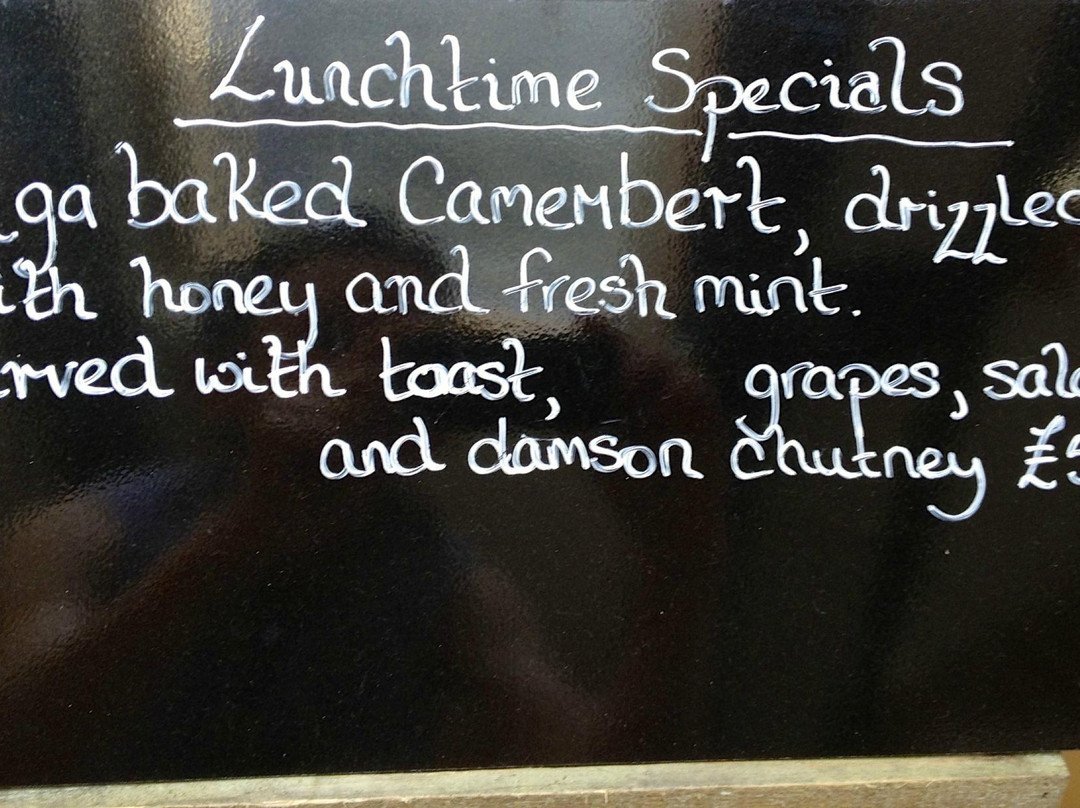 Lunchtime Specials
ga baked Camembert, drizzled
ith honey and fresh mint.
rved with toast, grapes, sala
and damson chutney £5